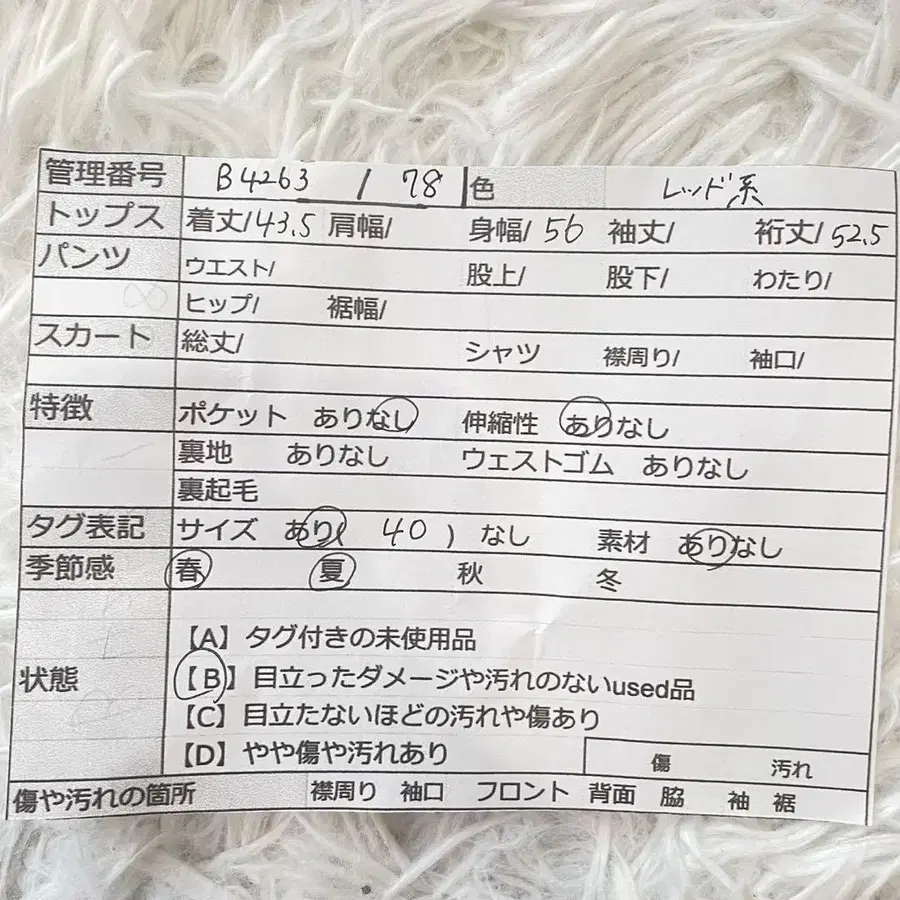 管理番号 B4263 / 78 色 レッド系
トップス 着丈/43.5 肩幅/ 身幅/ 56 袖丈/ 裄丈/ 52.5
パンツ ウエスト/ 股上/ 股下/ わたり/
ヒップ/ 裾幅/
スカート 総丈/ シャツ 襟周り/ 袖口/
特徴 ポケット ありなし 伸縮性 ありなし
裏地 ありなし ウェストゴム ありなし
裏起毛
タグ表記 サイズ あり( 40 ) なし 素材 ありなし
季節感 春 夏 秋 冬
状態
【A】タグ付きの未使用品
【B】目立ったダメージや汚れのないused品
【C】目立たないほどの汚れや傷あり
【D】やや傷や汚れあり
傷 汚れ
傷や汚れの箇所 襟周り 袖口 フロント 背面 脇 袖 裾